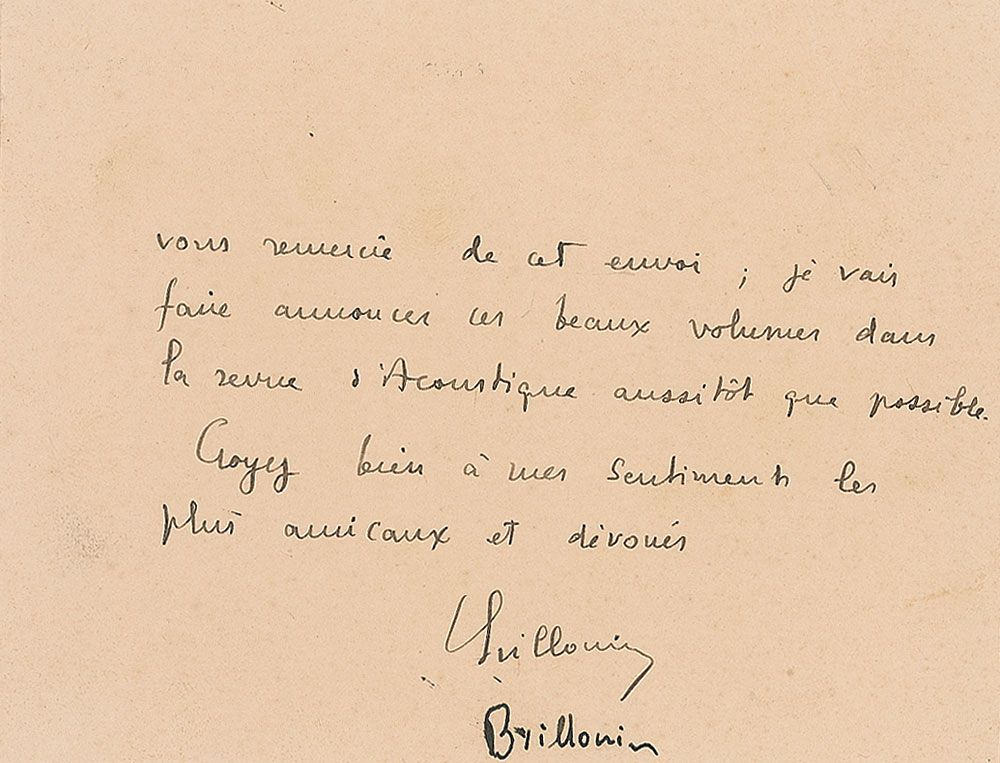 vous remercie de cet envoi ; je vais
faire annoncer ces beaux volumes dans
la revue d'Acoustique aussitôt que possible.
Croyez bien à mes sentiments les
plus amicaux et dévoués
LBrillouin
Brillouin